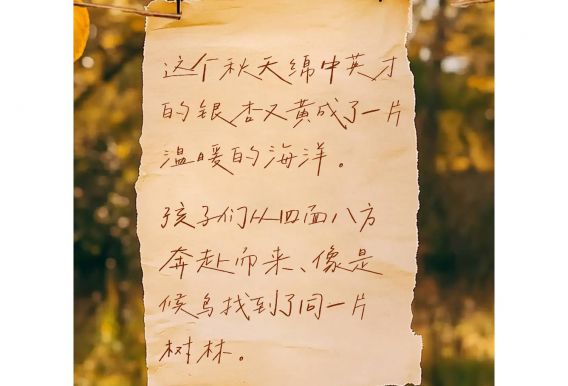 这个秋天绵中英才
的银杏又黄成了一片
温暖的海洋。
孩子们从四面八方
奔赴而来、像是
候鸟找到了同一片
树林。